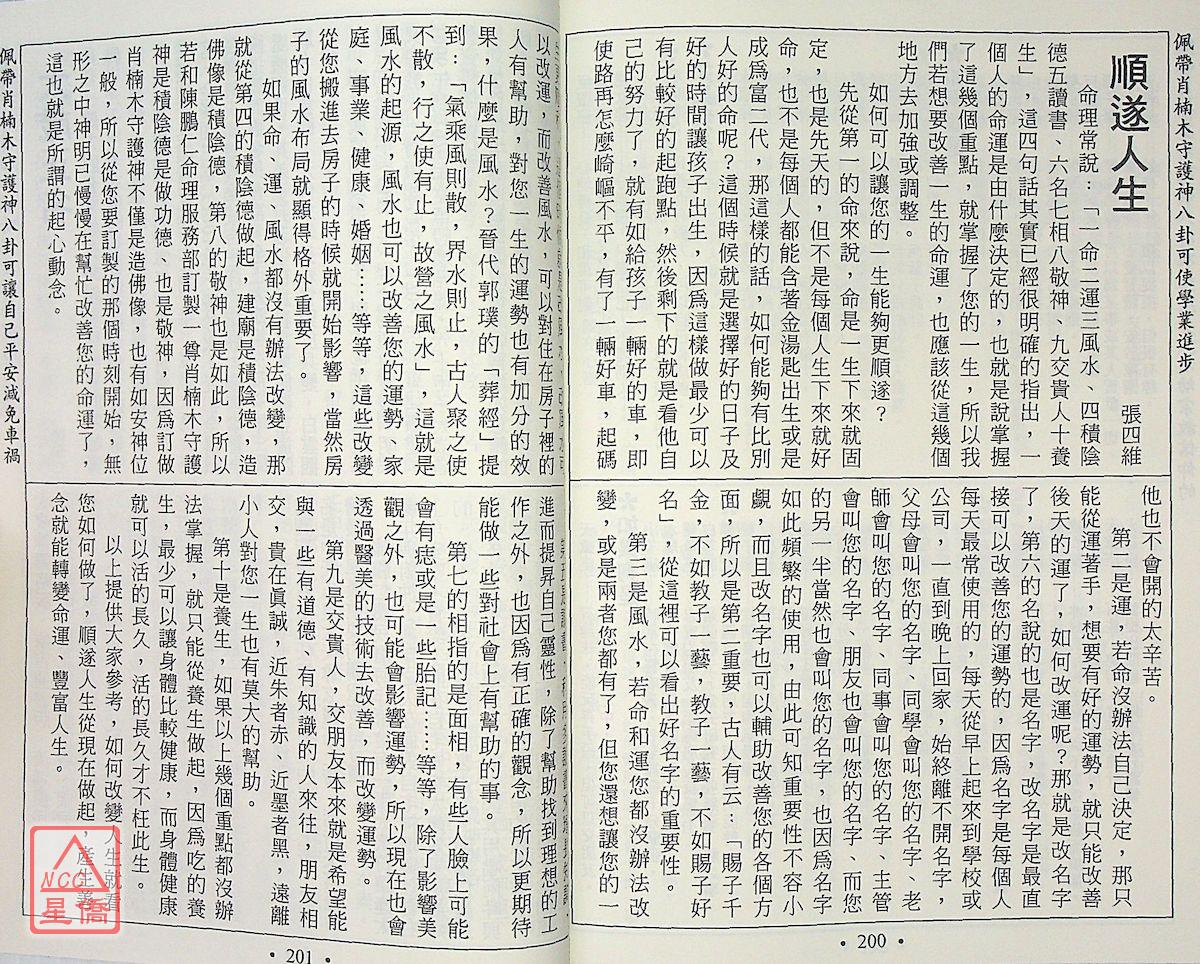 佩帶肖楠木守護神八卦可使學業進步
順遂人生
張四維
命理常說：「一命二運三風水、四積陰
德五讀書、六名七相八敬神、九交貴人十養
生」，這四句話其實已經很明確的指出，一
個人的命運是由什麼決定的，也就是說掌握
了這幾個重點，就掌握了您的一生，所以我
們若想要改善一生的命運，也應該從這幾個
地方去加強或調整。
如何可以讓您的一生能夠更順遂？
先從第一的命來說，命是一生下來就固
定，也是先天的，但不是每個人生下來就好
命，也不是每個人都能含著金湯匙出生或是
成為富二代，那這樣的話，如何能夠有比別
人好的命呢？這個時候就是選擇好的日子及
好的時間讓孩子出生，因為這樣做最少可以
有比較好的起跑點，然後剩下的就是看他自
己的努力了，就有如給孩子一輛好的車，即
使路再怎麼崎嶇不平，有了一輛好車，起碼
他也不會開的太辛苦。
第二是運，若命沒辦法自己決定，那只
能從運著手，想要有好的運勢，就只能改善
後天的運了，如何改運呢？那就是改名字
了，第六的名說的也是名字，改名字是最直
接可以改善您的運勢的，因為名字是每個人
每天最常使用的，每天從早上起來到學校或
公司，一直到晚上回家，始終離不開名字，
父母會叫您的名字、同學會叫您的名字、老
師會叫您的名字、同事會叫您的名字、主管
會叫您的名字、朋友也會叫您的名字、而您
的另一半當然也會叫您的名字，也因為名字
如此頻繁的使用，由此可知重要性不容小
覷，而且改名字也可以輔助改善您的各個方
面，所以是第二重要，古人有云：「賜子千
金，不如教子一藝，教子一藝，不如賜子好
名」，從這裡可以看出好名字的重要性。
第三是風水，若命和運您都沒辦法改
變，或是兩者您都有了，但您還想讓您的一
• 200 •
以改運，而改善風水，可以對住在房子裡的
人有幫助，對您一生的運勢也有加分的效
果，什麼是風水？晉代郭璞的「葬經」提
到：「氣乘風則散，界水則止，古人聚之使
不散，行之使有止，故營之風水」，這就是
風水的起源，風水也可以改善您的運勢、家
庭、事業、健康、婚姻……等等，這些改變
從您搬進去房子的時候就開始影響，當然房
子的風水布局就顯得格外重要了。
如果命、運、風水都沒有辦法改變，那
就從第四的積陰德做起，建廟是積陰德，造
佛像是積陰德，第八的敬神也是如此，所以
若和陳鵬仁命理服務部訂製一尊肖楠木守護
神是積陰德是做功德、也是敬神，因為訂做
肖楠木守護神不僅是造佛像，也有如安神位
一般，所以從您要訂製的那個時刻開始，無
形之中神明已慢慢在幫忙改善您的命運了，
這也就是所謂的起心動念。
進而提昇自己靈性，除了幫助找到理想的工
作之外，也因為有正確的觀念，所以更期待
能做一些對社會上有幫助的事。
第七的相指的是面相，有些人臉上可能
會有痣或是一些胎記……等等，除了影響美
觀之外，也可能會影響運勢，所以現在也會
透過醫美的技術去改善，而改變運勢。
第九是交貴人，交朋友本來就是希望能
與一些有道德、有知識的人來往，朋友相
交，貴在真誠，近朱者赤、近墨者黑，遠離
小人對您一生也有莫大的幫助。
第十是養生，如果以上幾個重點都沒辦
法掌握，就只能從養生做起，因為吃的養
生，最少可以讓身體比較健康，而身體健康
就可以活的長久，活的長久才不枉此生。
以上提供大家參考，如何改變人生就看
您如何做了，順遂人生從現在做起，產生善
念就能轉變命運、豐富人生。
佩帶肖楠木守護神八卦可讓自己平安減免車禍
• 201 •
NCC
星僑